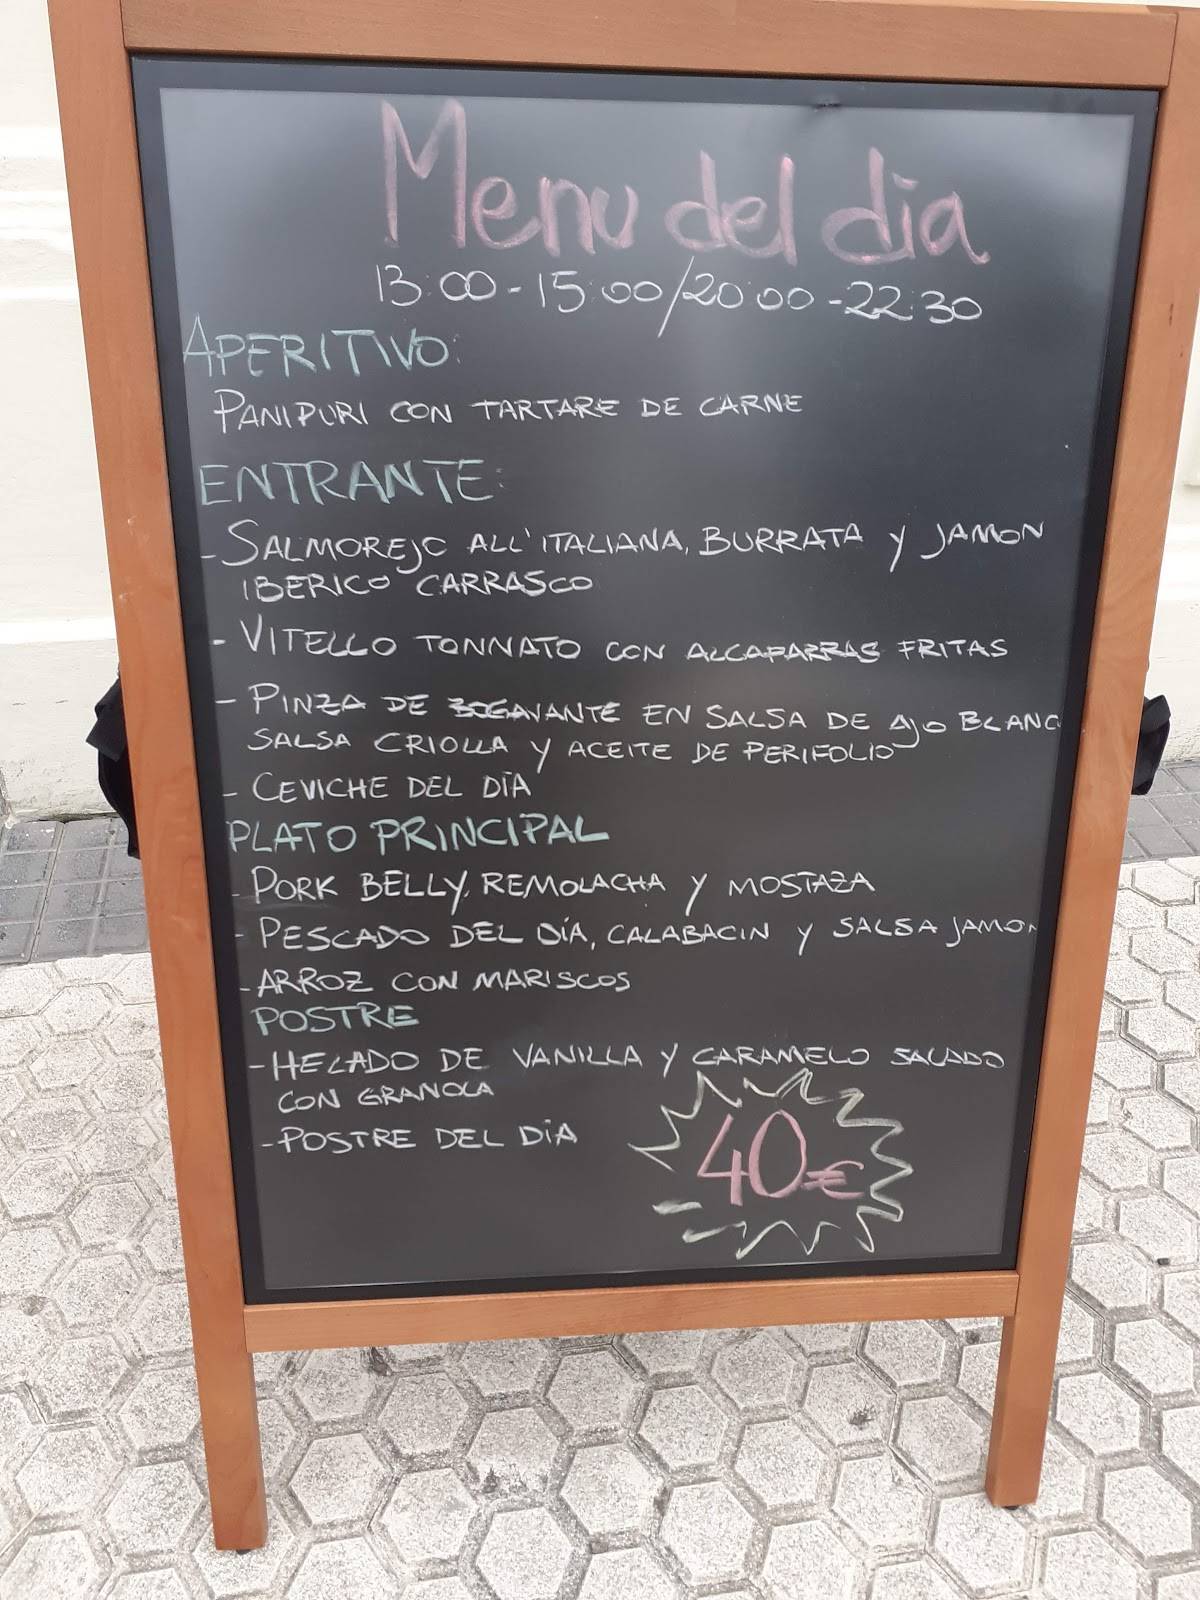 Menu del dia
13:00-15:00/20:00-22:30
APERITIVO:
PANIPURI CON TARTARE DE CARNE
ENTRANTE:
-SALMOREJO ALL'ITALIANA, BURRATA Y JAMON
IBERICO CARRASCO
-VITELLO TONNATO CON ALCAPARRAS FRITAS
-PINZA DE BOGAVANTE EN SALSA DE AJO BLANCO
SALSA CRIOLLA Y ACEITE DE PERIFOLIO
-CEVICHE DEL DÍA
PLATO PRINCIPAL
-PORK BELLY, REMOLACHA Y MOSTAZA
-PESCADO DEL DÍA, CALABACIN Y SALSA JAMON
-ARROZ CON MARISCOS
POSTRE
-HELADO DE VANILLA Y CARAMELO SALADO
CON GRANOLA
-POSTRE DEL DIA
40€